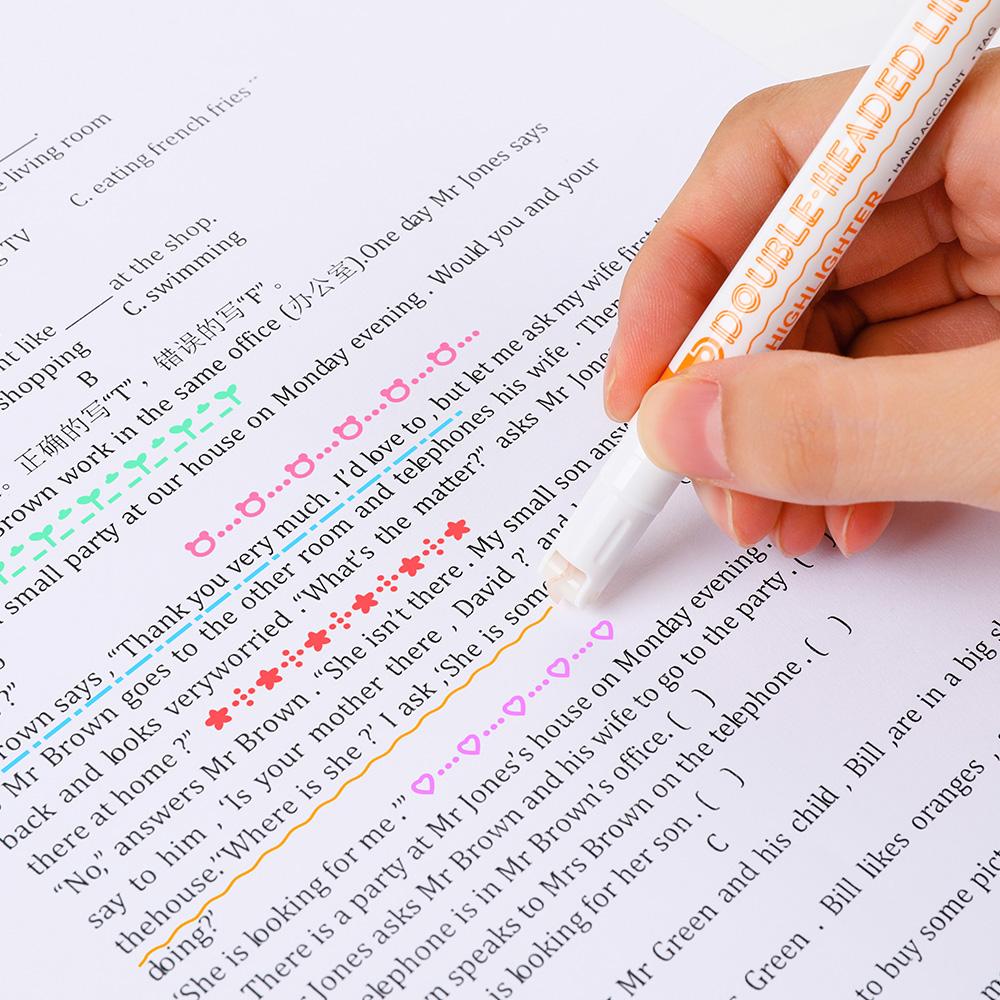 e living room
C. eating french fries
TV
at the shop.
nt like
C. swimming
shopping
B
正确的写“T”, 错误的写“F”。
Brown work in the same office (办公室).One day Mr Jones says
small party at our house on Monday evening . Would you and your
rown says ,“Thank you very much . I'd love to , but let me ask my wife first
Mr Brown goes to the other room and telephones his wife . The
back and looks veryworried .“What's the matter?” asks Mr Jon
there at home ?”
“No,” answers Mr Brown .“She isn't there . My small son answ
say to him , ‘Is your mother there , David ?’ and
thehouse.’“Where is she ?’ I ask ,‘She is som
doing?’
“She is looking for me .’”
There is a party at Mr Jones's house on Monday evening . (
Jones asks Mr Brown and his wife to go to the party . (
elephone is in Mr Brown's office. ( )
n speaks to Mrs Brown on the telephone . ( )
is looking for her son . ( )
C
Mr Green and his child , Bill ,are in a big sh
Green . Bill likes oranges ,
to buy some pict
DOUBLE-HEADED LIN
HIGHLIGHTER · HAND ACCOUNT · TAG